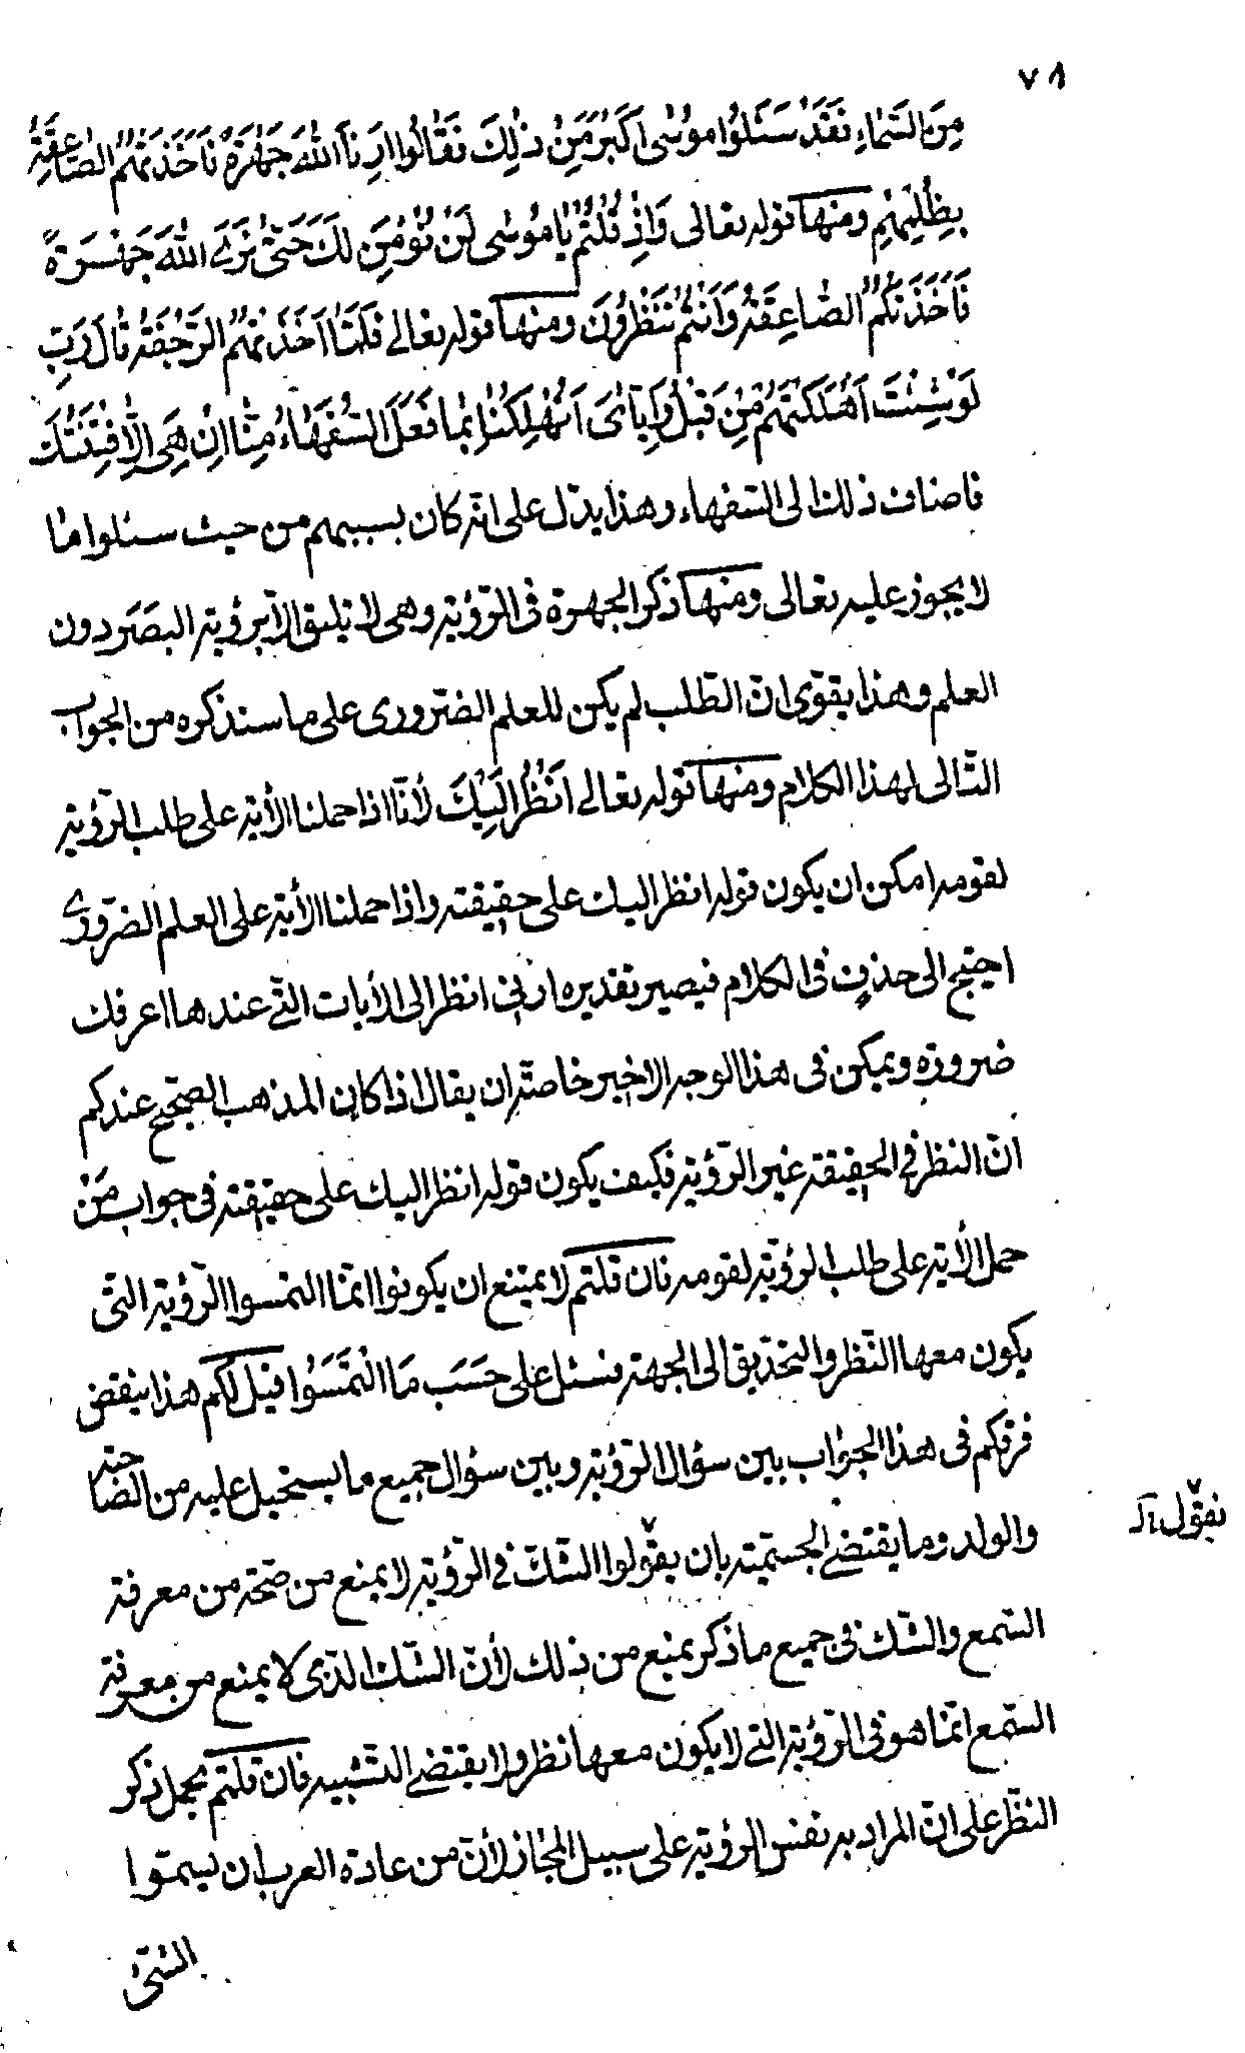 ٧٨
مِنَ السَّمَاءِ فَقَدْ سَئَلُوا مُوسٰى اَكْبَرَ مِنْ ذٰلِكَ فَقَالُوا اَرِنَا اللهَ جَهْرَةً فَاَخَذَتْهُمُ الصَّاعِقَةُ
بِظُلْمِهِمْ ومنها قوله تعالى وَاِذْ قُلْتُمْ يٰا مُوسٰى لَنْ نُؤْمِنَ لَكَ حَتّٰى نَرَى اللهَ جَهْرَةً
فَاَخَذَتْكُمُ الصّٰاعِقَةُ وَاَنْتُمْ تَنْظُرُونَ ومنها قوله تعالى فَلَمّٰا اَخَذَتْهُمُ الرَّجْفَةُ قٰالَ رَبِّ
لَوْ شِئْتَ اَهْلَكْتَهُمْ مِنْ قَبْلُ وَاِيّٰاىَ اَتُهْلِكُنٰا بِمٰا فَعَلَ السُّفَهٰاءُ مِنّٰا اِنْ هِىَ اِلّٰا فِتْنَتُكَ
فاضاف ذلك الى السّفهاء وهذا يدّل على انّه كان بسببهم من حيث سئلوا مٰا
لا يجوز عليه تعالى ومنها ذكر الجهرة فى الرّؤية وهى لا تليق الّا برؤية البصَر دون
العلم وهذا يقوّى انّ الطّلب لم يكن للعلم الضّرورى على ما سنذكره من الجواب
التّالى لهذا الكلام ومنها قوله تعالى اَنْظُرْ اِلَيْكَ لأنّا اذا حملنا الأية على طلب الرّؤية
لقومه امكن ان يكون قوله انظر اليك على حقيقته واذا حملنا الأية على العلم الضّرورى
احتيج الى حذف فى الكلام فيصير تقديره ارنى انظر الى الأيات التّى عندها اعرفك
ضرورة ويمكن فى هذا الوجه الاخير خاصّة ان يقال اذا كان المذهب الصّحيح عندكم
انّ النظر فى الحقيقة غير الرّؤية فكيف يكون قوله انظر اليك على حقيقته فى جواب مَنْ
حمل الأية على طلب الرؤية لقومه فان قلتم لا يمتنع ان يكونوا انّما التمسوا الرّؤية التى
يكون معها النّظر والتحديق الى الجهة فسئل على حَسَب مَا الْتَمَسُوا قيل لكم هذا ينقض
فرقكم فى هذا الجوٰاب بين سؤال الرّؤية وبين سؤال جميع ما يستحيل عليه من الصّاحبة
والولد وما يقتضى الجسميّة بان يقولوا الشّكّ فى الرّؤية لا يمنع من صحّة من معرفة
نقول ر
السّمع والشّك فى جميع ما ذكر يمنع من ذلك لأنّ الشّك الّذى لا يمنع من معرفة
السّمع انّما هو فى الرّؤية التّى لا يكون معها نظر ولا يقتضى التّشبيه فان قلتم يحمل ذكر
النظّر على انّ المراد به نفس الرؤية على سبيل المجٰاز لأنّ من عادة العرب ان يسمّوا
الشئ